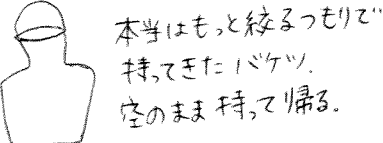 本当はもっと絞るつもりで
持ってきたバケツ.
空のまま持って帰る.